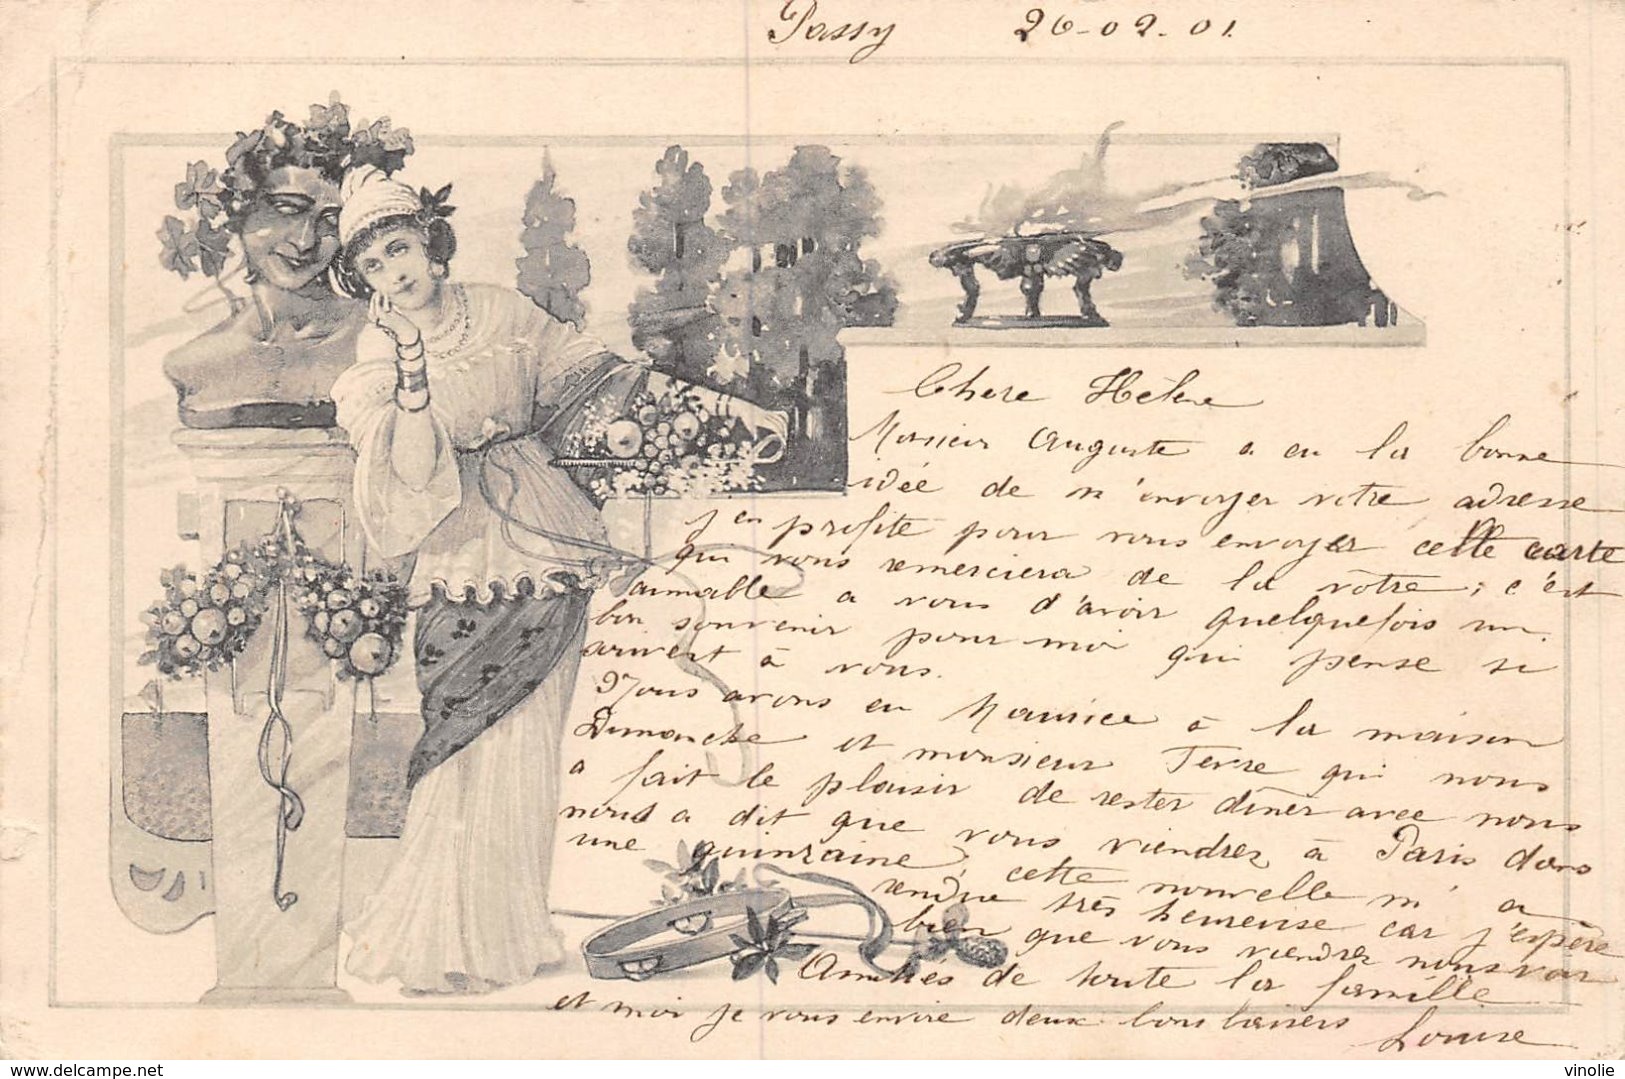 Passy 26-02.01.
Chere Hélène
Monsieur Auguste a eu la bonne
idée de m'envoyer votre adresse
j'en profite pour vous envoyer cette carte
qui vous remerciera de la vôtre ; c'est
aimable a vous d'avoir quelquefois un
bon souvenir pour moi qui pense si
souvent à vous.
Nous avons eu Maurice à la maison
Dimanche et monsieur Terre qui nous
a fait le plaisir de rester diner avec nous
nous a dit que vous viendrez à Paris dans
une quinzaine, cette nouvelle m'a
rendue très heureuse car j'espère
bien que vous viendrez nous voir
Amitiés de toute la famille
et moi je vous envoie deux bons baisers
Louise
delcampe.net
vinolie